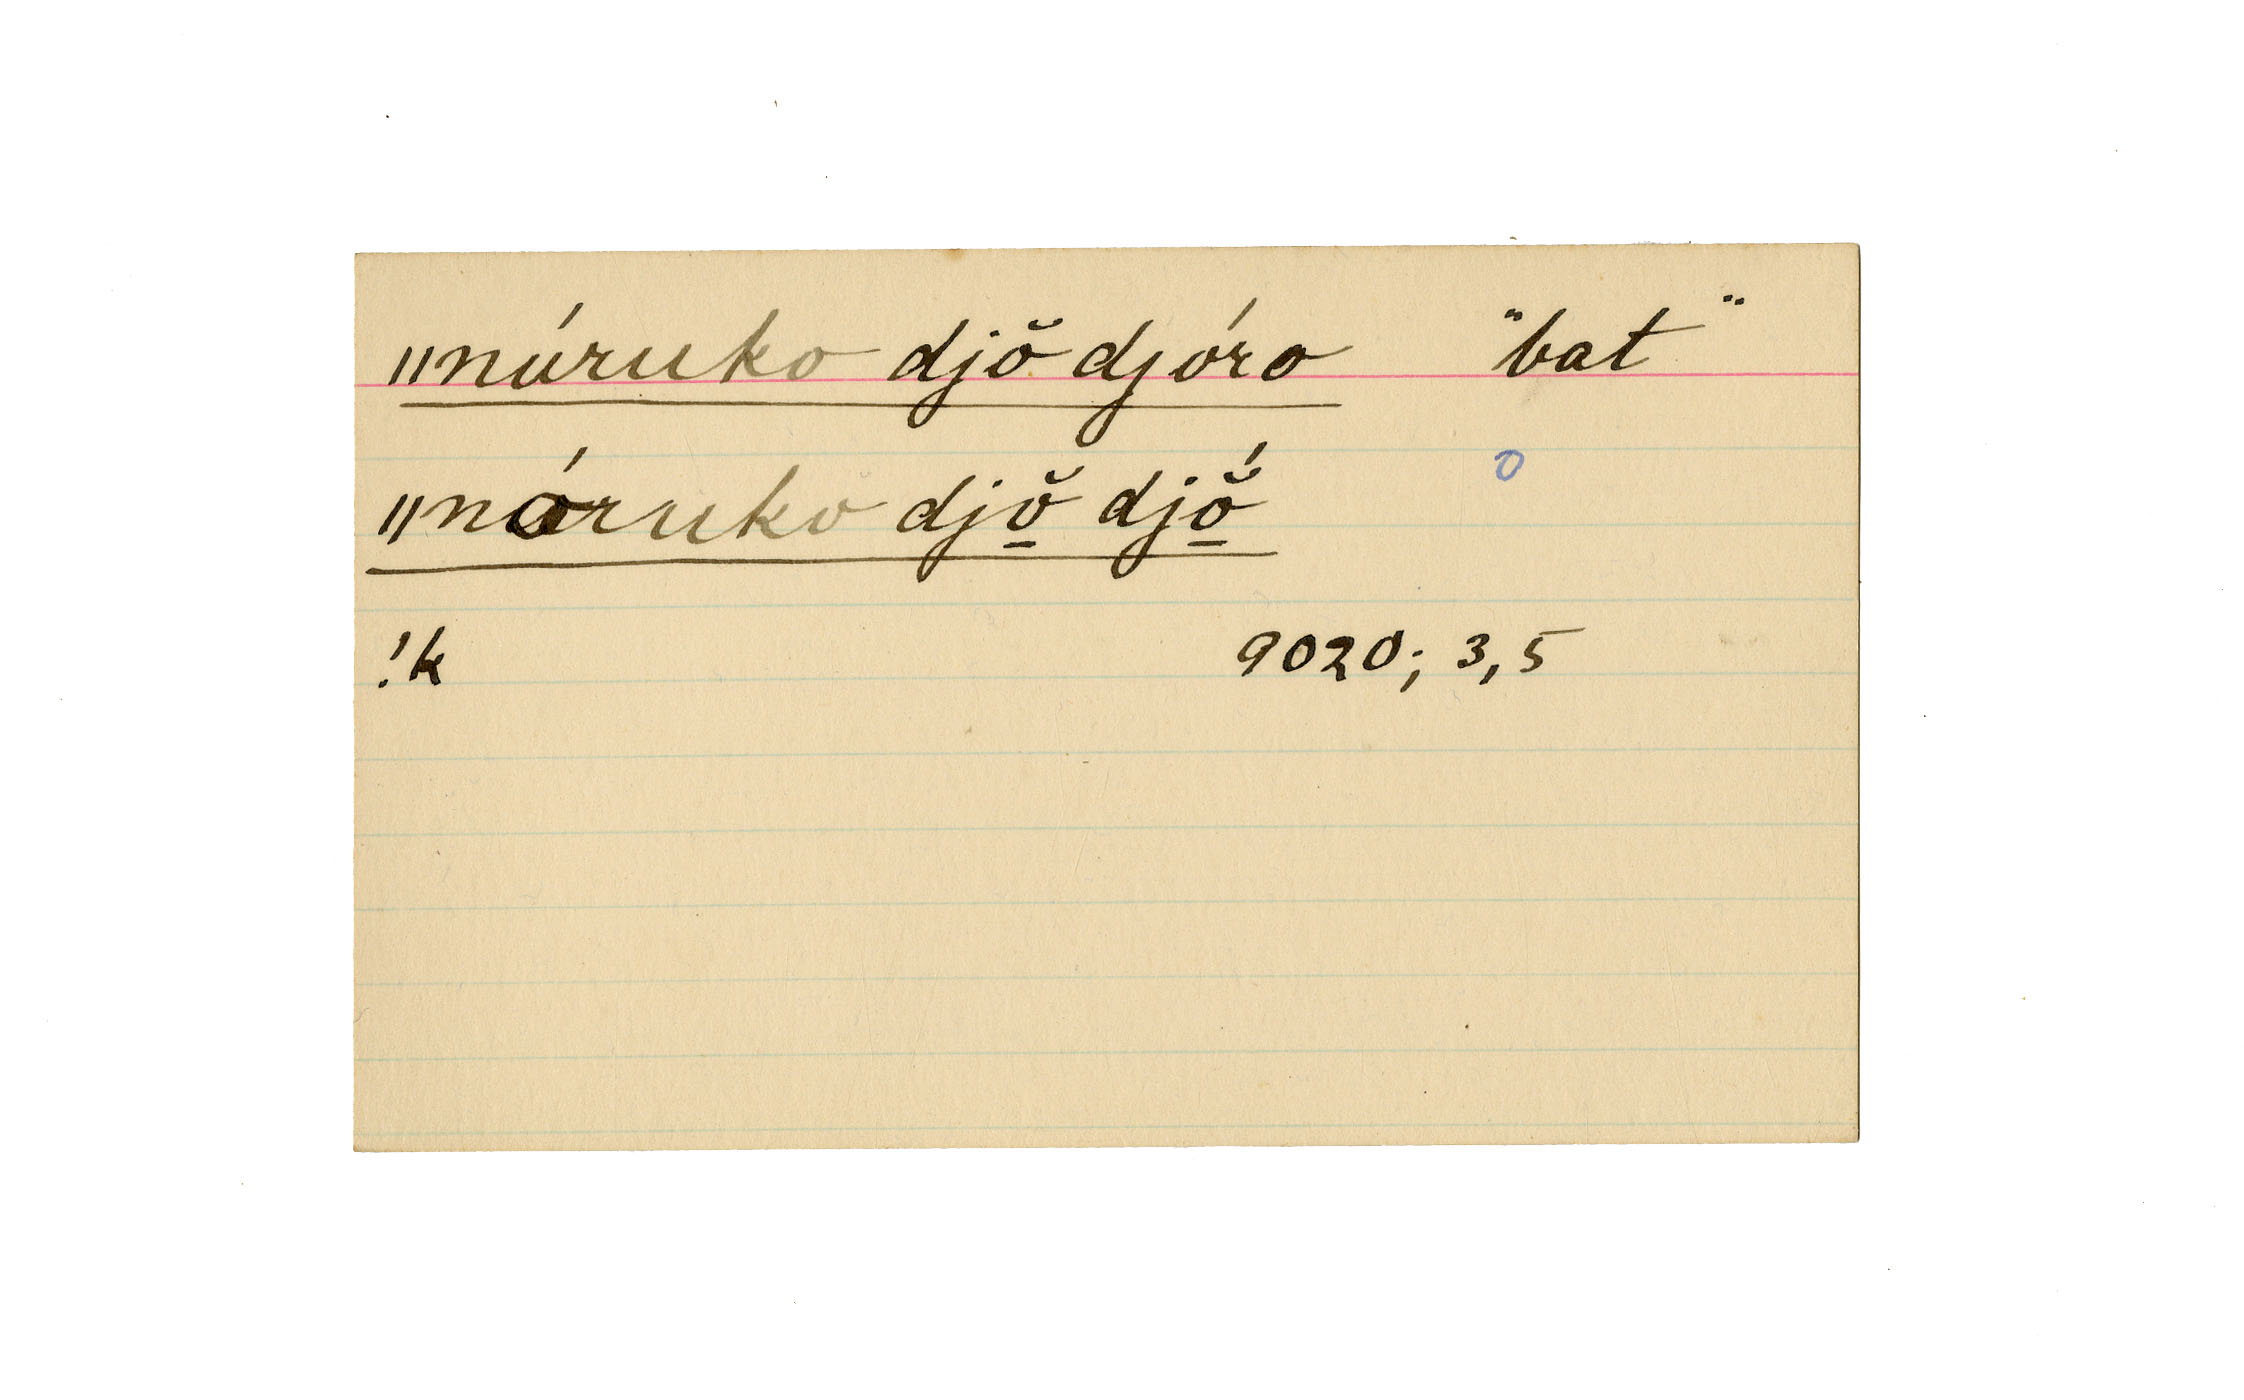 "núruko djŏ djóro "bat"
"nóruko djŏ̱ djŏ̱́ o
!k 9020; 3,5